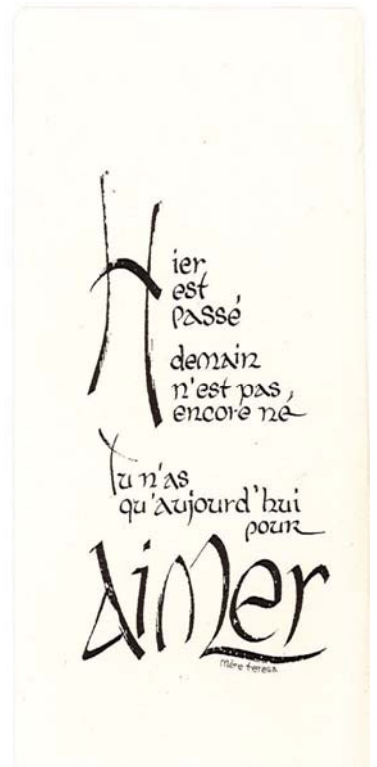 Hier
est
passé
demain
n'est pas
encore né
Tu n'as
qu'aujourd'hui
pour
Aimer
Mère Teresa